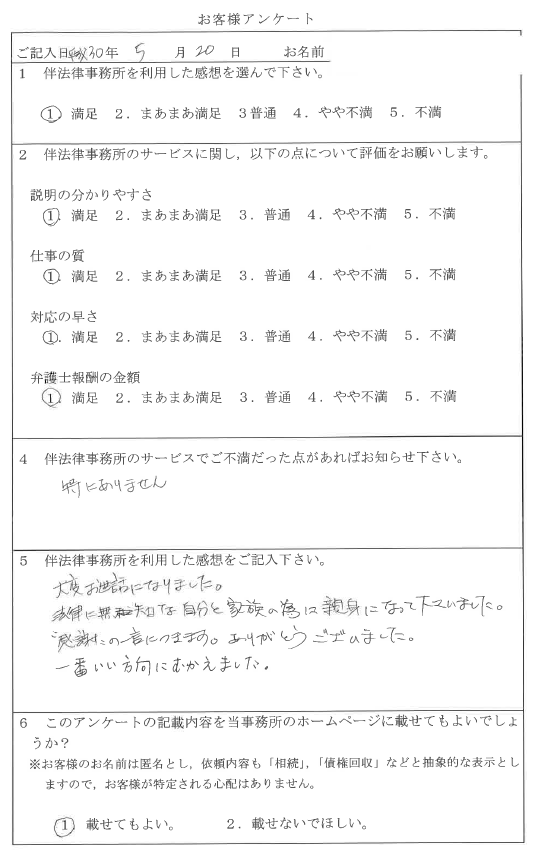 お客様アンケート
ご記入日 平成30年 5 月 20 日 お名前
1 伴法律事務所を利用した感想を選んで下さい。
①. 満足 2. まあまあ満足 3普通 4. やや不満 5. 不満
2 伴法律事務所のサービスに関し,以下の点について評価をお願いします。
説明の分かりやすさ
①. 満足 2. まあまあ満足 3. 普通 4. やや不満 5. 不満
仕事の質
①. 満足 2. まあまあ満足 3. 普通 4. やや不満 5. 不満
対応の早さ
①. 満足 2. まあまあ満足 3. 普通 4. やや不満 5. 不満
弁護士報酬の金額
①. 満足 2. まあまあ満足 3. 普通 4. やや不満 5. 不満
4 伴法律事務所のサービスでご不満だった点があればお知らせ下さい。
特にありません
5 伴法律事務所を利用した感想をご記入下さい。
大変お世話になりました。
法律に無知な自分と家族の為に親身になって下さいました。
感謝の一言につきます。ありがとうございました。
一番いい方向にむかえました。
6 このアンケートの記載内容を当事務所のホームページに載せてもよいでしょ
うか?
※お客様のお名前は匿名とし,依頼内容も「相続」,「債権回収」などと抽象的な表示とし
ますので,お客様が特定される心配はありません。
①. 載せてもよい。 2. 載せないでほしい。